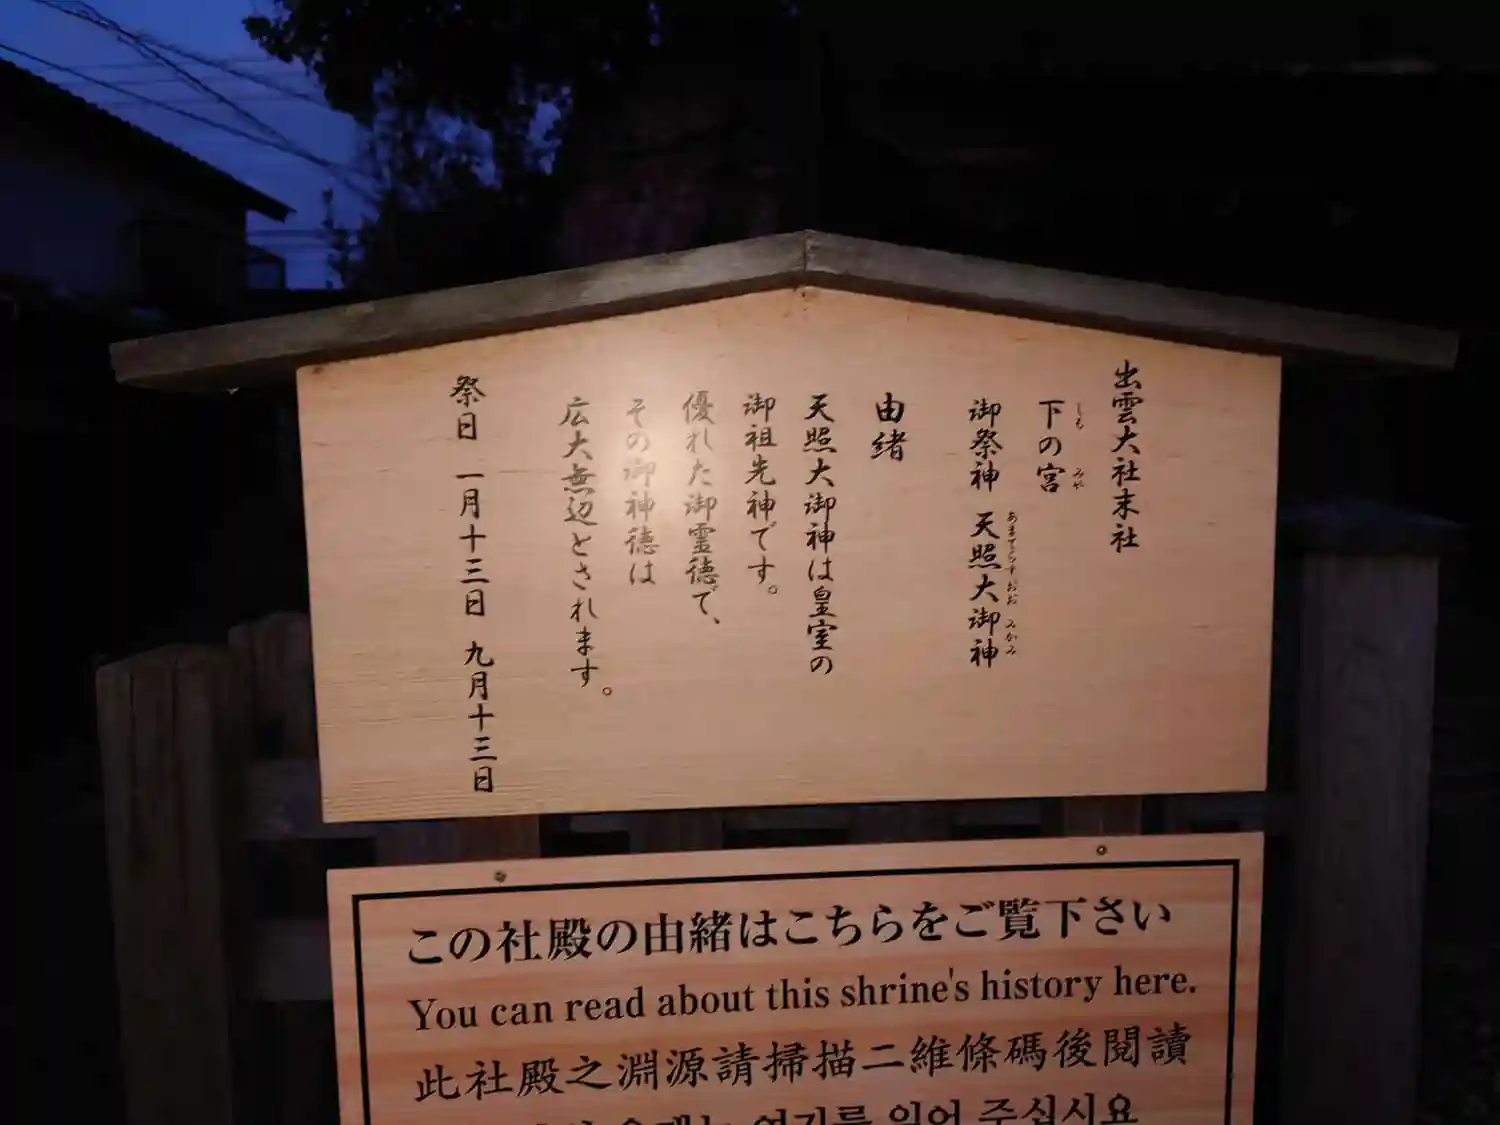 出雲大社末社
下の宮
しも みや
御祭神 天照大御神
あまてらすおおみかみ
由緒
天照大御神は皇室の
御祖先神です。
優れた御霊徳で、
その御神徳は
広大無辺とされます。
祭日 一月十三日 九月十三日
この社殿の由緒はこちらをご覧下さい
You can read about this shrine's history here.
此社殿之淵源請掃描二維條碼後閱讀
여기를 읽어 주십시오